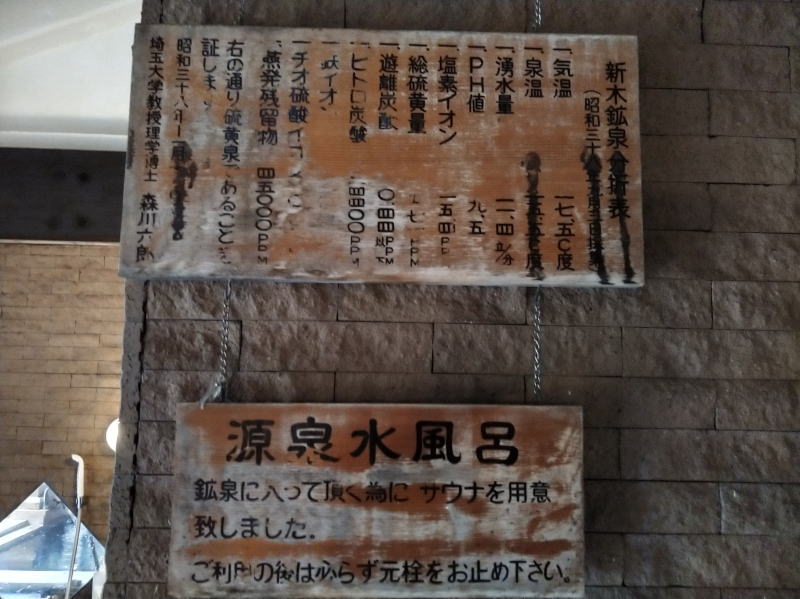 新木鉱泉分析表
(昭和三十
一、気温 一七、五C度
一、泉温 C度
一、湧水量 一一、四立/分
一、PH値 九、五
一、塩素イオン 一五、四PP
一、総硫黄量
一、遊離炭酸 〇、四四PPM以下
一、ヒドロ炭酸
一、チオ硫酸イ
一、蒸発残留物 四五〇〇PPM
右の通り硫黄泉であることを
証します
昭和三十八年
埼玉大学教授理学博士 森川六郎
源泉水風呂
鉱泉に入って頂く為に サウナを用意
致しました.
ご利用の後は必らず元栓をお止め下さい。